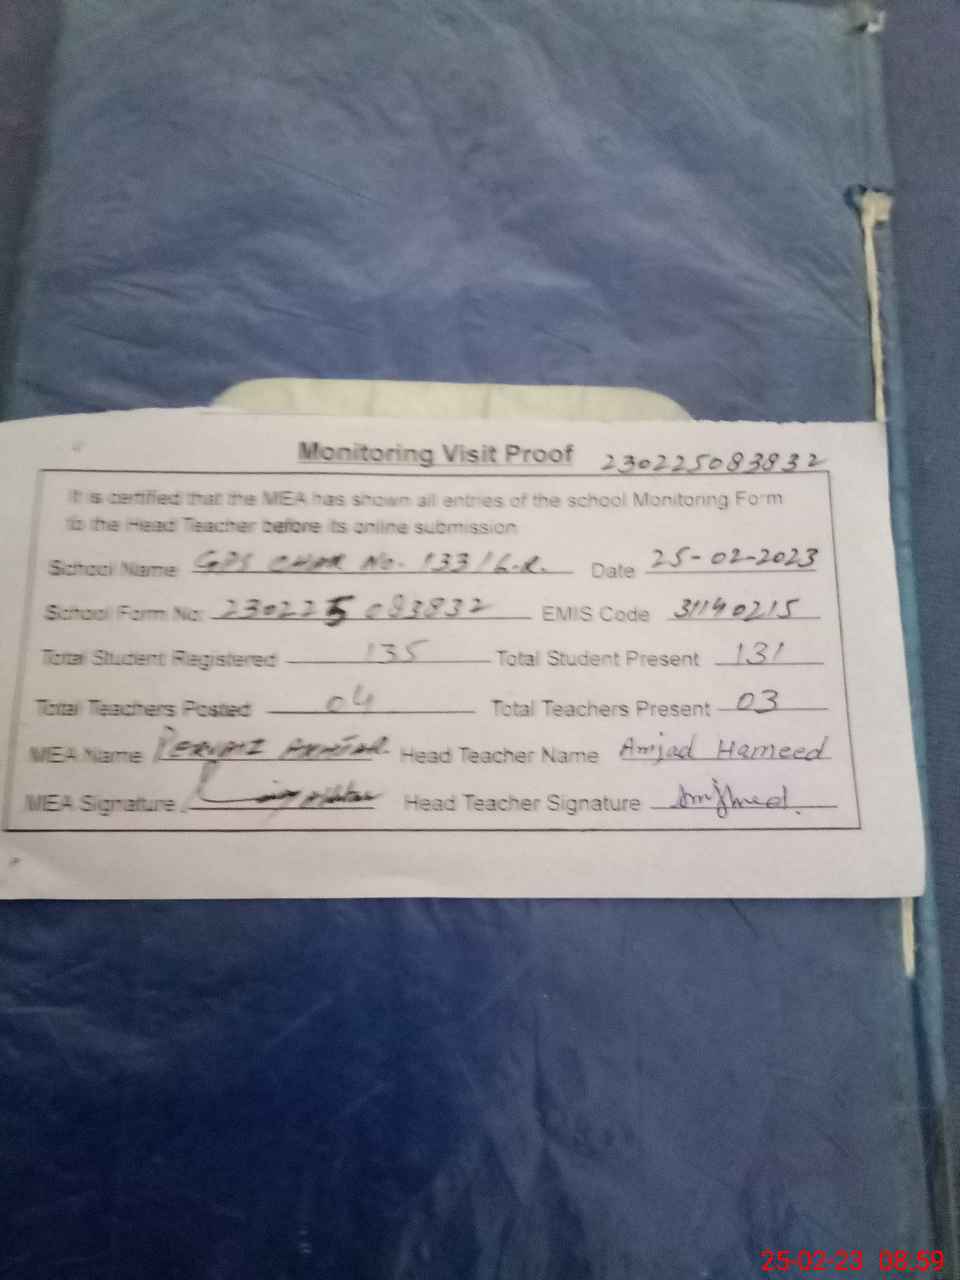 Monitoring Visit Proof 230225083832
It is certified that the MEA has shown all entries of the school Monitoring Form
to the Head Teacher before its online submission
School Name GPS CHAK No. 133/6-R. Date 25-02-2023
School Form No: 230225083832 EMIS Code 31140215
Total Student Registered 135 Total Student Present 131
Total Teachers Posted 04 Total Teachers Present 03
MEA Name PERVAIZ AKHTAR Head Teacher Name Amjad Hameed
MEA Signature Head Teacher Signature
25-02-23 08.59